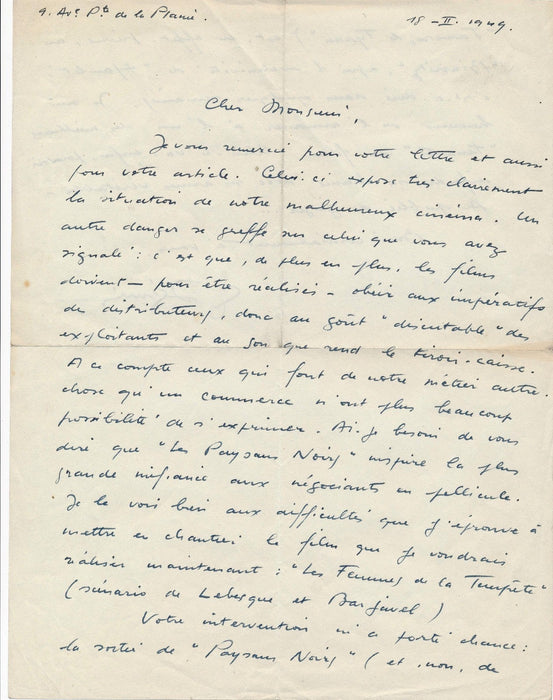 9. Av. Pte de la Plaine.
15 - II. 1949.
Cher Monsieur,
Je vous remercie pour votre lettre et aussi
pour votre article. Celui-ci expose très clairement
la situation de notre malheureux cinéma. Un
autre danger se greffe sur celui que vous avez
signalé : c'est que, de plus en plus, les films
doivent — pour être réalisés — obéir aux impératifs
des distributeurs, donc au goût "discutable" des
exploitants et au son que rend le tiroir-caisse.
A ce compte ceux qui font de notre métier autre
chose qu'un commerce n'ont plus beaucoup
possibilité de s'exprimer. Ai-je besoin de vous
dire que "Les Paysans Noirs" inspire la plus
grande méfiance aux négociants en pellicule.
Je le vois bien aux difficultés que j'éprouve à
mettre en chantier le film que je voudrais
réaliser maintenant : "Les Femmes de la Tempête"
(scénario de Leberque et Barjavel)
Votre intervention m'a porté chance :
la sortie de "Paysans Noirs" (et, non, de